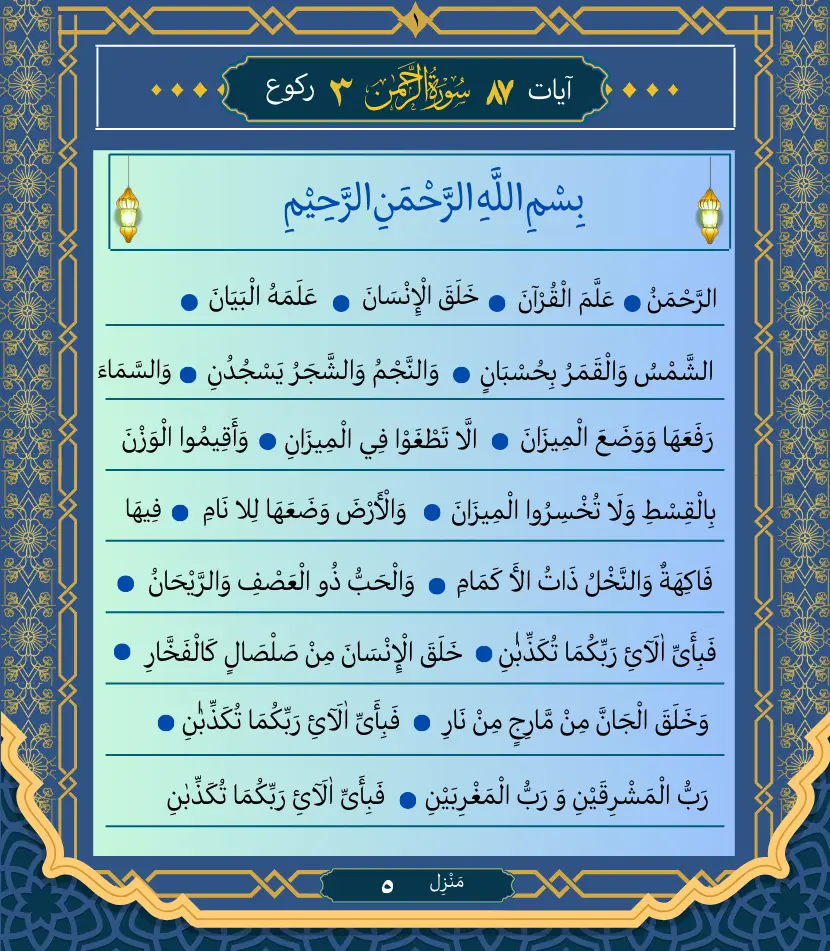 ١
آيات ٨٧ سُورَةُ الرَّحْمٰن ٣ ركوع
بِسْمِ اللَّهِ الرَّحْمَنِ الرَّحِيْمِ
الرَّحْمَنُ ● عَلَّمَ الْقُرْآنَ ● خَلَقَ الْإِنْسَانَ ● عَلَمَهُ الْبَيَانَ ●
الشَّمْسُ وَالْقَمَرُ بِحُسْبَانٍ ● وَالنَّجْمُ وَالشَّجَرُ يَسْجُدُنِ ● وَالسَّمَاءَ
رَفَعَهَا وَوَضَعَ الْمِيزَانَ ● الَّا تَطْغَوْا فِي الْمِيزَانِ ● وَأَقِيمُوا الْوَزْنَ
بِالْقِسْطِ وَلَا تُخْسِرُوا الْمِيزَانَ ● وَالْأَرْضَ وَضَعَهَا لِلا نَامِ ● فِيهَا
فَاكِهَةٌ وَالنَّخْلُ ذَاتُ الأَ كَمَامِ ● وَالْحَبُّ ذُو الْعَصْفِ وَالرَّيْحَانُ ●
فَبِأَىِّ اٰلَآئِ رَبِّكُمَا تُكَذِّبٰنِ ● خَلَقَ الْإِنْسَانَ مِنْ صَلْصَالٍ كَالْفَخَّارِ ●
وَخَلَقَ الْجَانَّ مِنْ مَّارِجٍ مِنْ نَارِ ● فَبِأَىِّ اٰلَآئِ رَبِّكُمَا تُكَذِّبٰنِ ●
رَبُّ الْمَشْرِقَيْنِ وَ رَبُّ الْمَغْرِبَيْنِ ● فَبِأَىِّ اٰلَآئِ رَبِّكُمَا تُكَذِّبٰنِ
مَنْزِل ٥